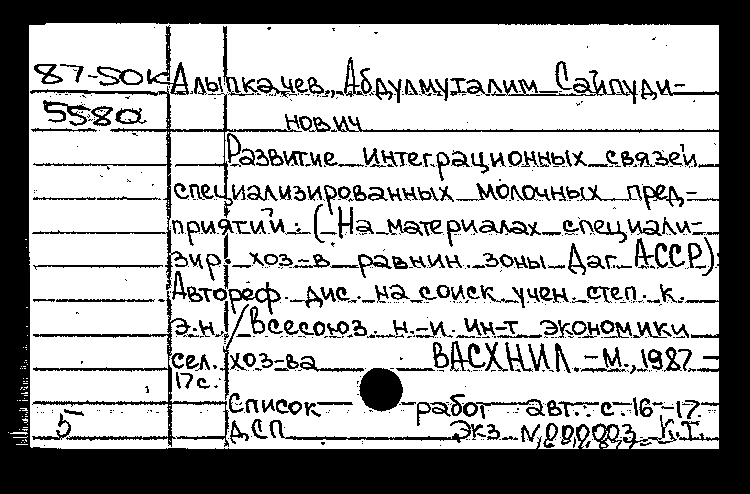 87-50К Алыпкачев, Абдулмуталим Сайпуди-
5580 нович
Развитие интеграционных связей
специализированных молочных пред-
приятий: (На материалах специали-
зир. хоз-в равнин. зоны Даг. АССР):
Автореф. дис. на соиск. учен. степ. к.
э.н. / Всесоюз. н.-и. ин-т экономики
сел. хоз-ва ВАСХНИЛ. - М., 1987 -
17 с.
Список работ авт.: с. 16-17.
5 ДСП Экз. N 000003 К.Т.